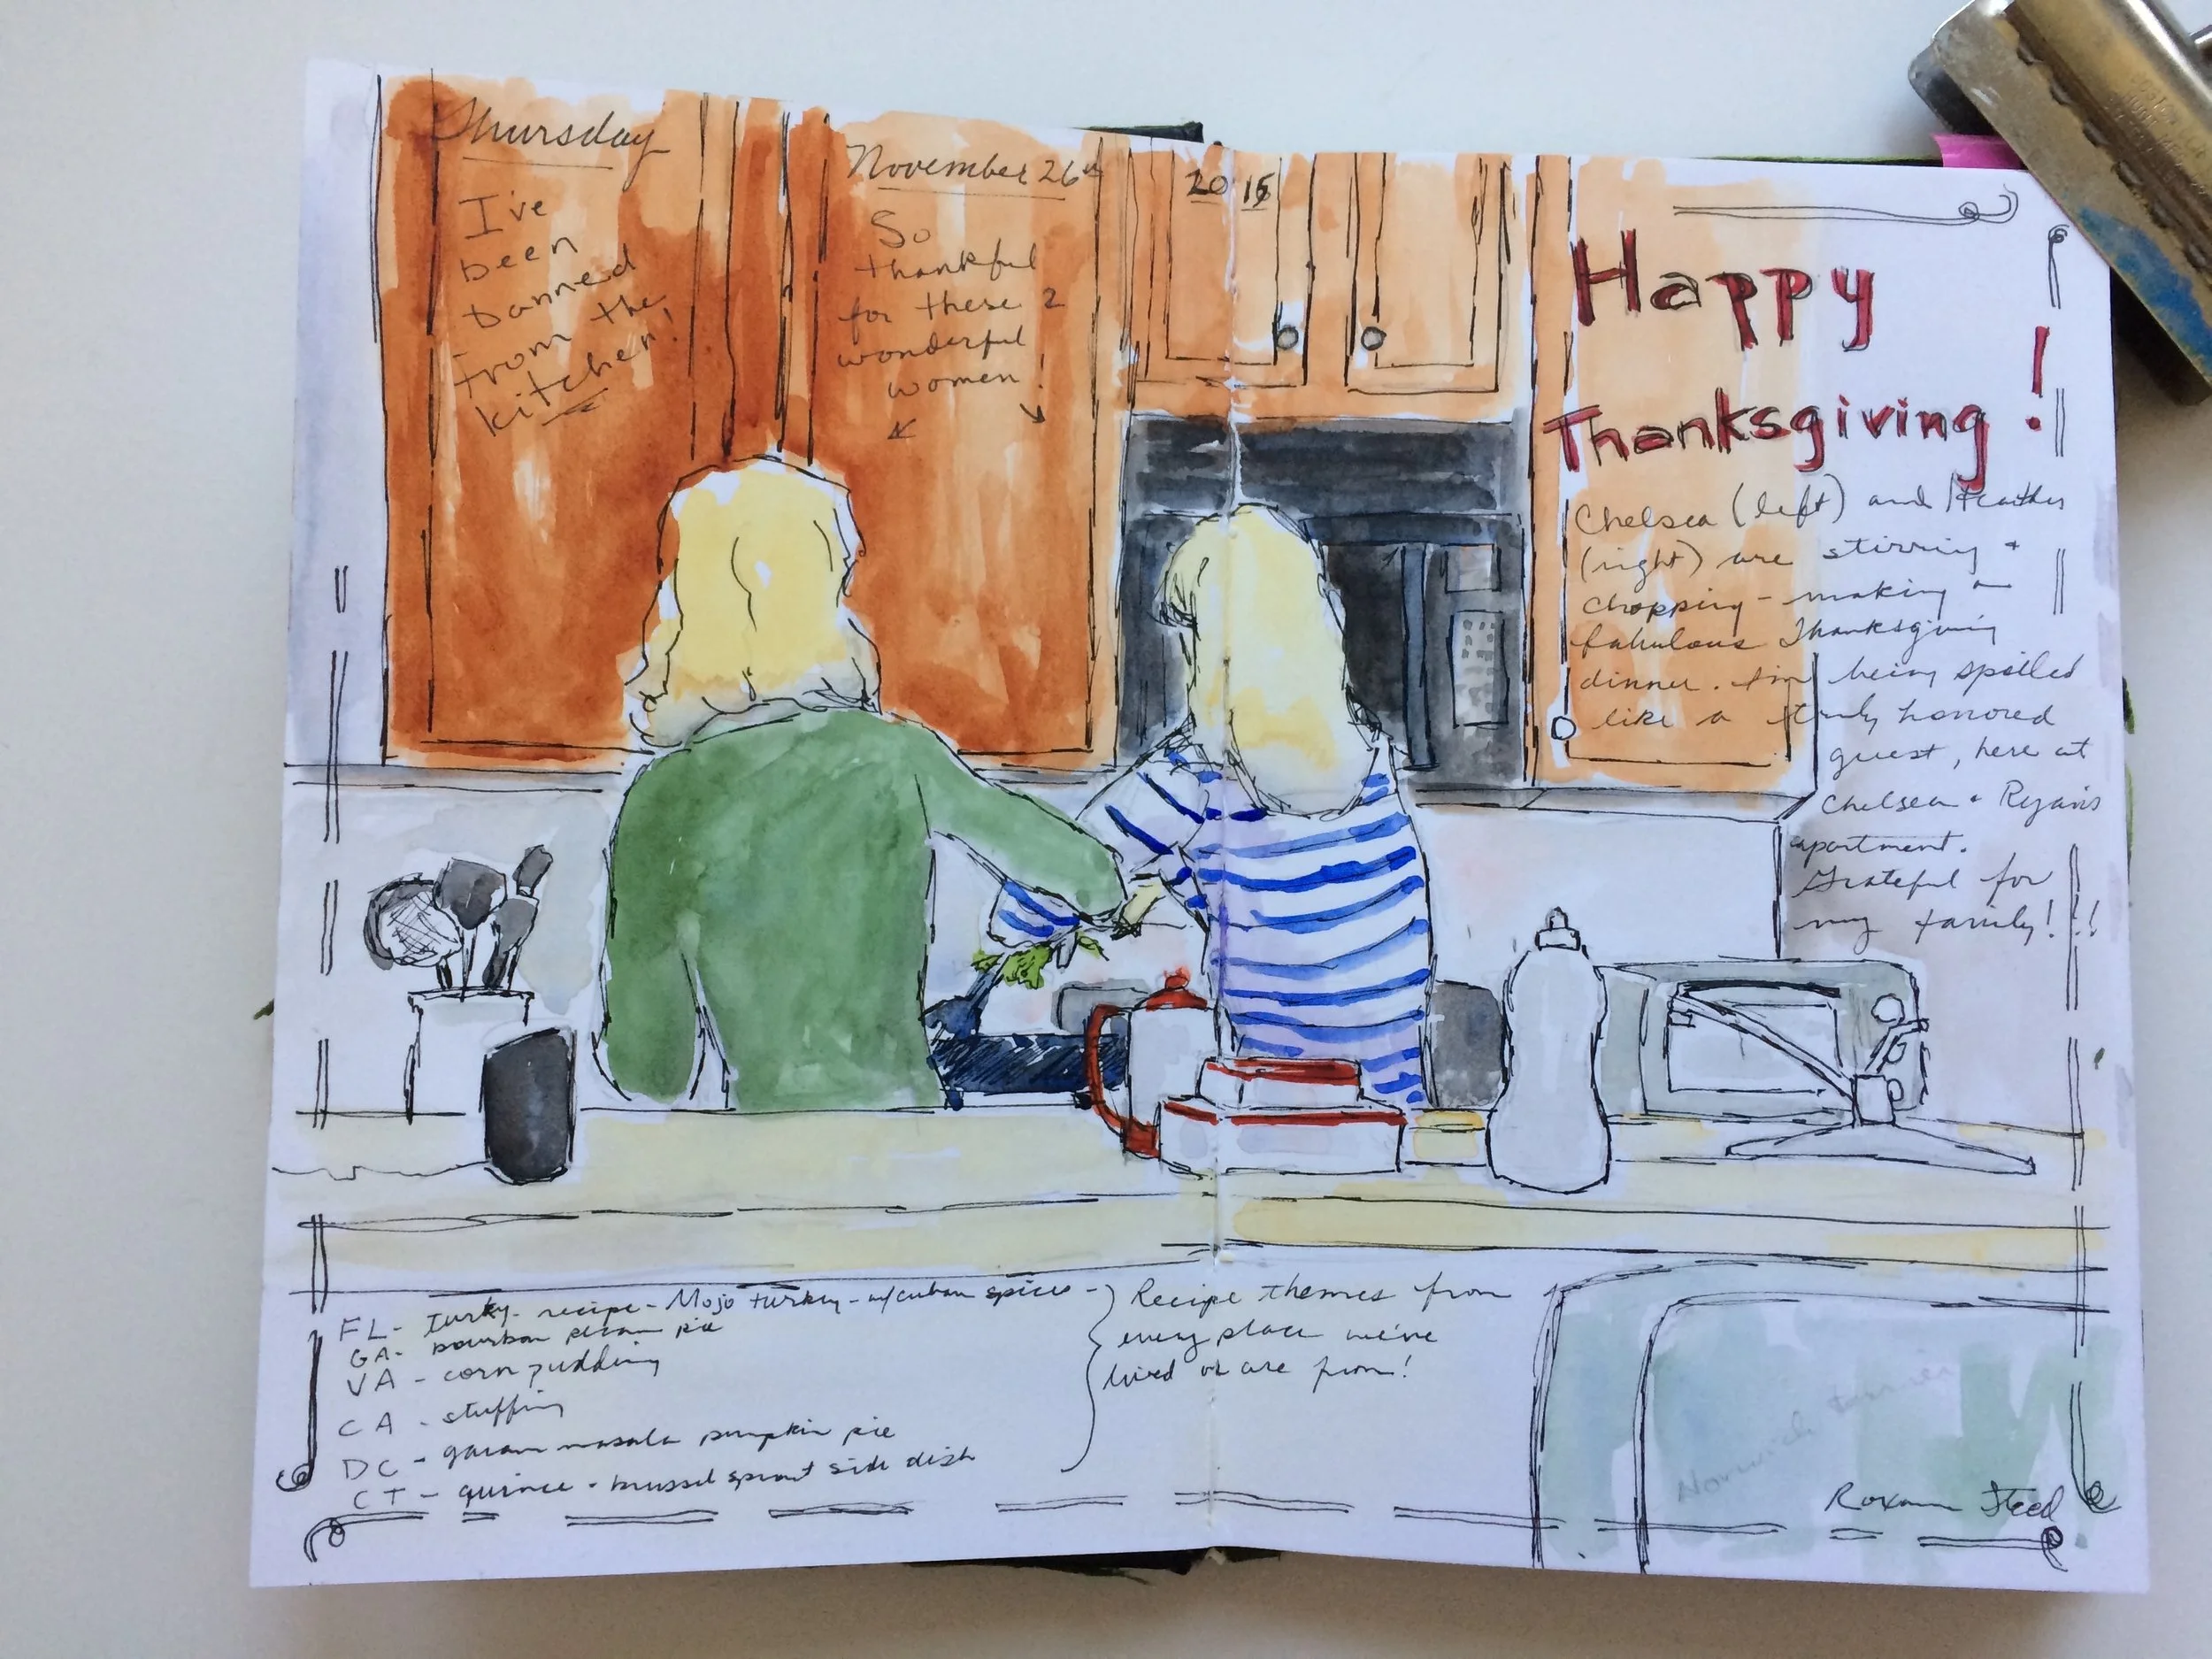 Thursday
November 26th
2015
I've
been
banned
from the
kitchen!
So
thankful
for these 2
wonderful
women!
Happy
Thanksgiving!
Chelsea (left) and Heather
(right) are stirring +
chopping - making a
fabulous Thanksgiving
dinner. I'm being spoiled
like a truly honored
guest, here at
Chelsea + Ryan's
apartment.
Grateful for
my family!!!
FL - turky - recipe - Mojo turkey - w/cuban spices -
GA - bourbon pecan pie
VA - corn pudding
CA - stuffing
DC - garam masala pumpkin pie
CT - quince - brussel sprout side dish
Recipe themes from
every place we've
lived or are from!
Norwich
Roxanne Steed